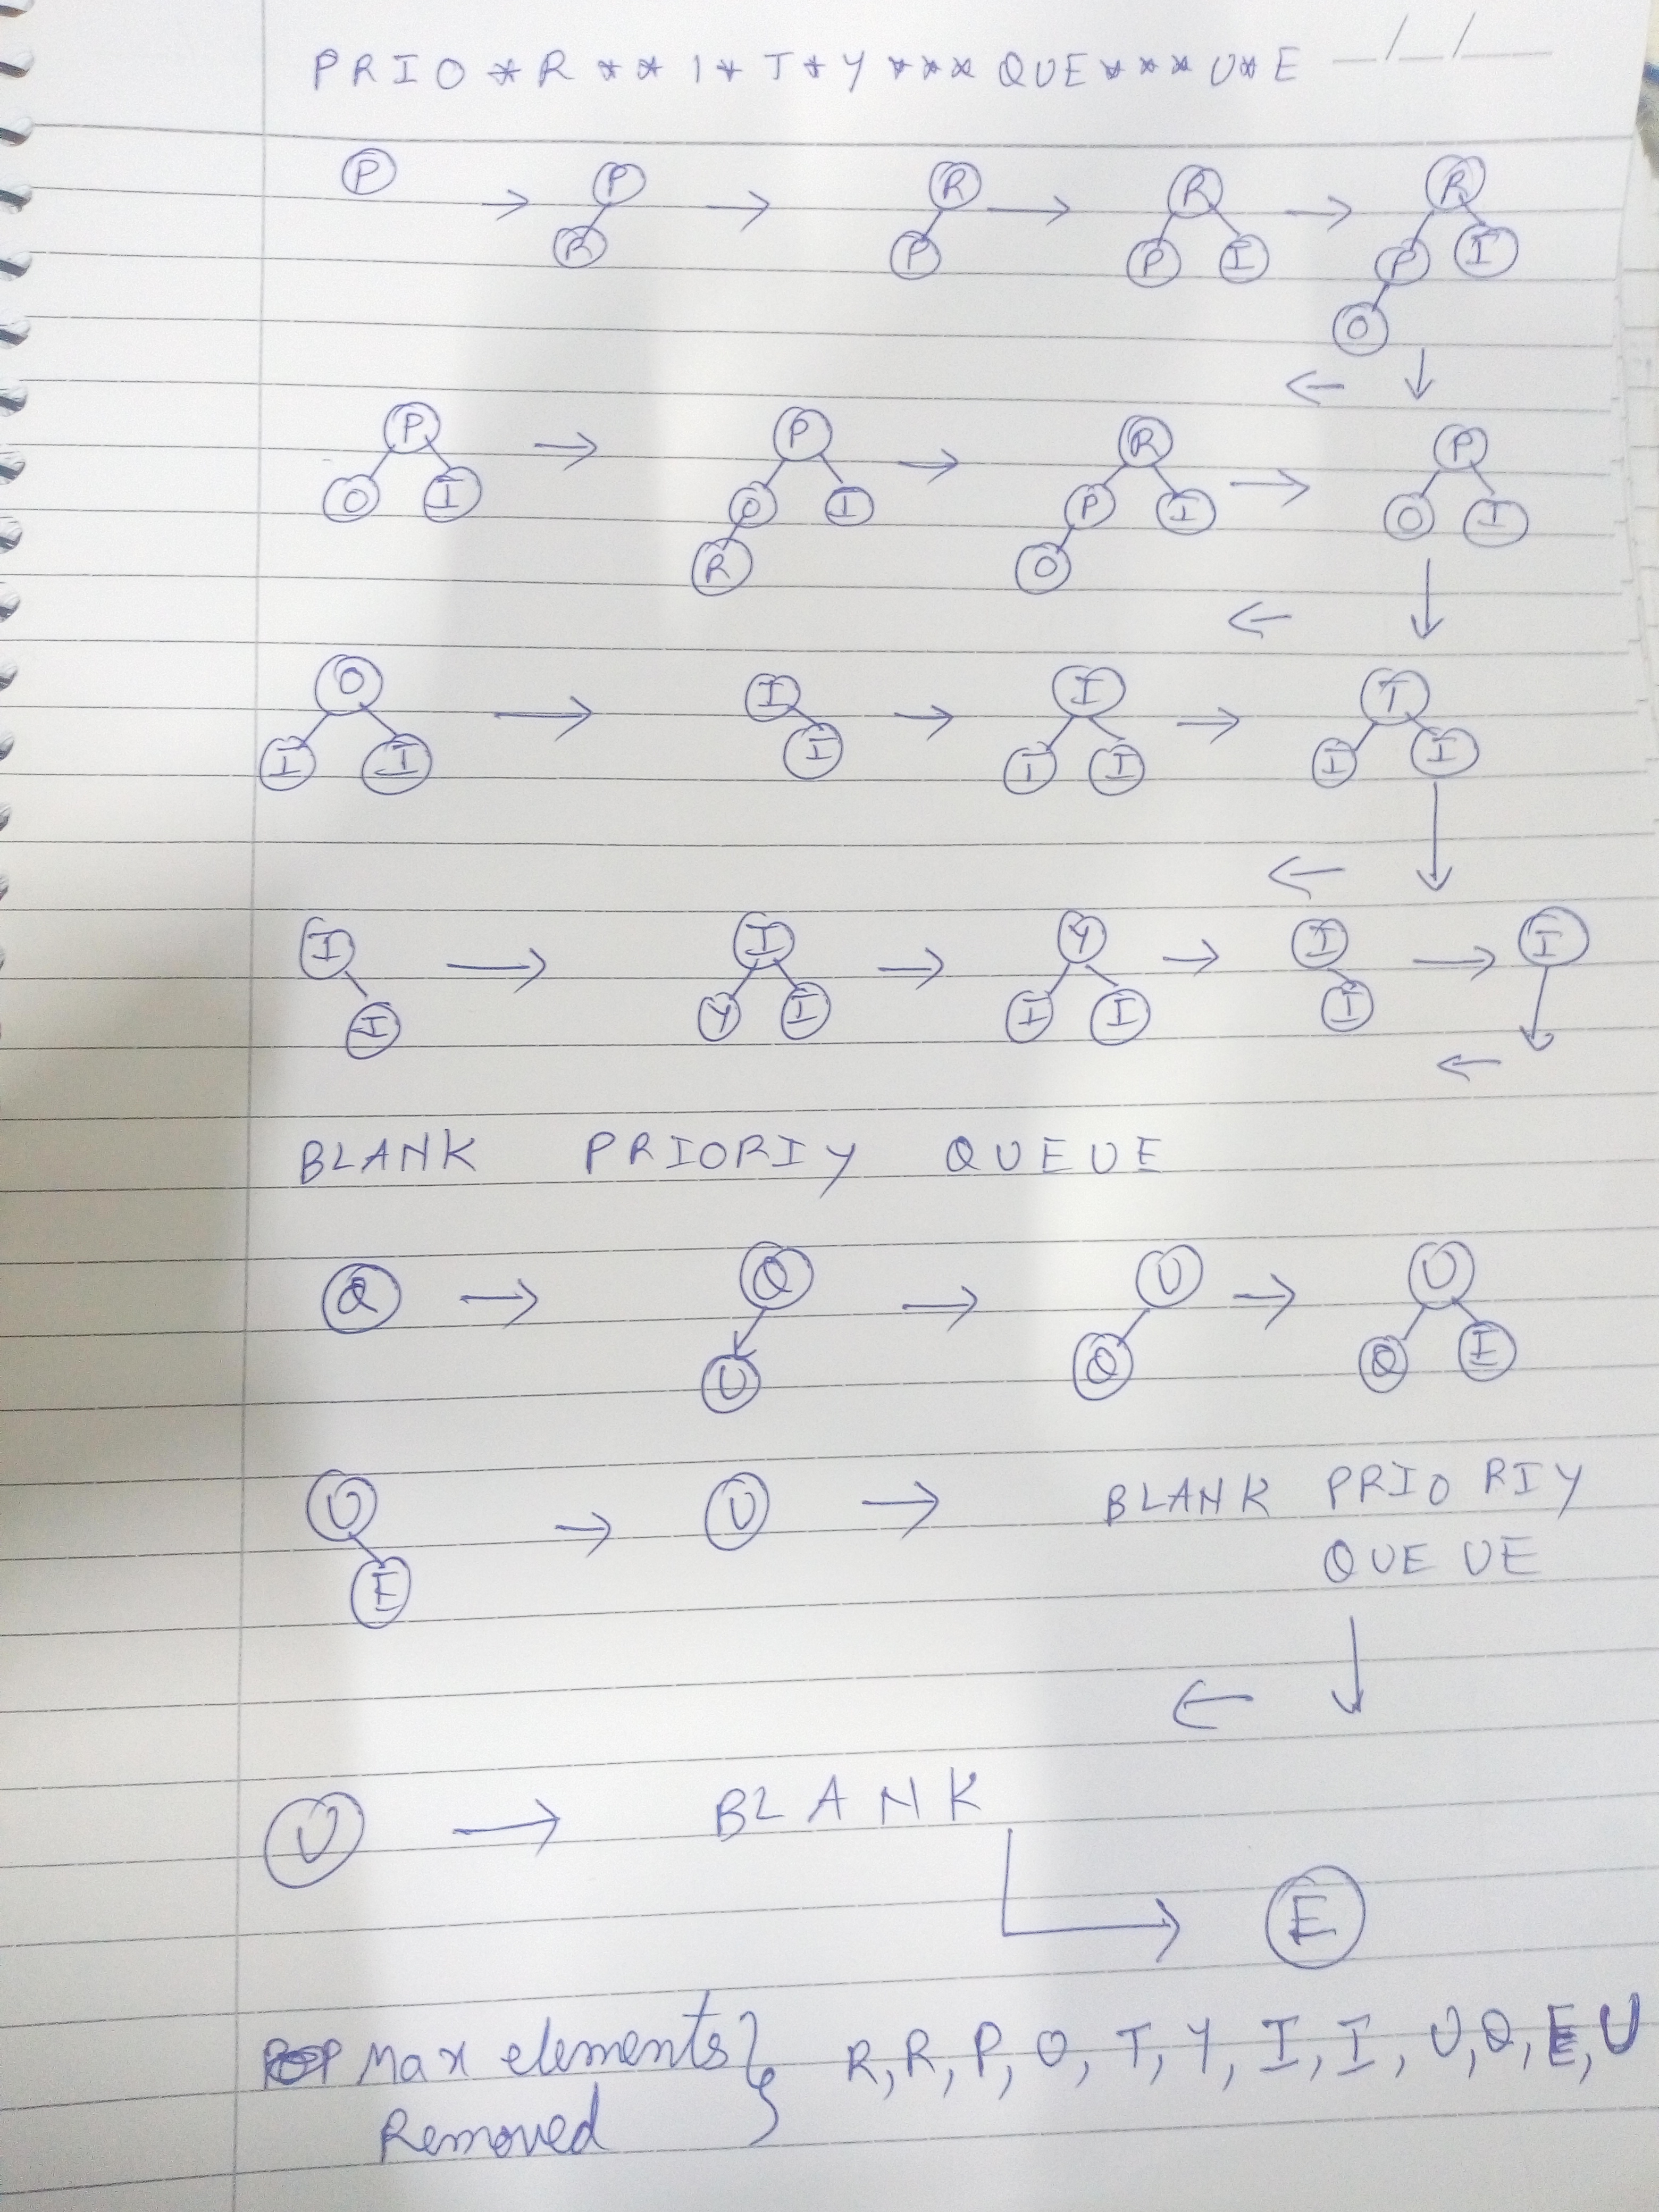 PRIO*R**I*T*Y***QUE***U*E _/_/__
P
P R
R P
R P I
R P I O
P O I
P O I R
R P I O
P O I
O I I
I I
I I I
T I I
I I
I Y I
Y I I
I I
I
BLANK PRIORIY QUEUE
Q
Q U
U Q
U Q E
U E
U
BLANK PRIORIY
QUEUE
U
BLANK
E
Max elements } R, R, P, O, T, Y, I, I, U, Q, E, U
Removed